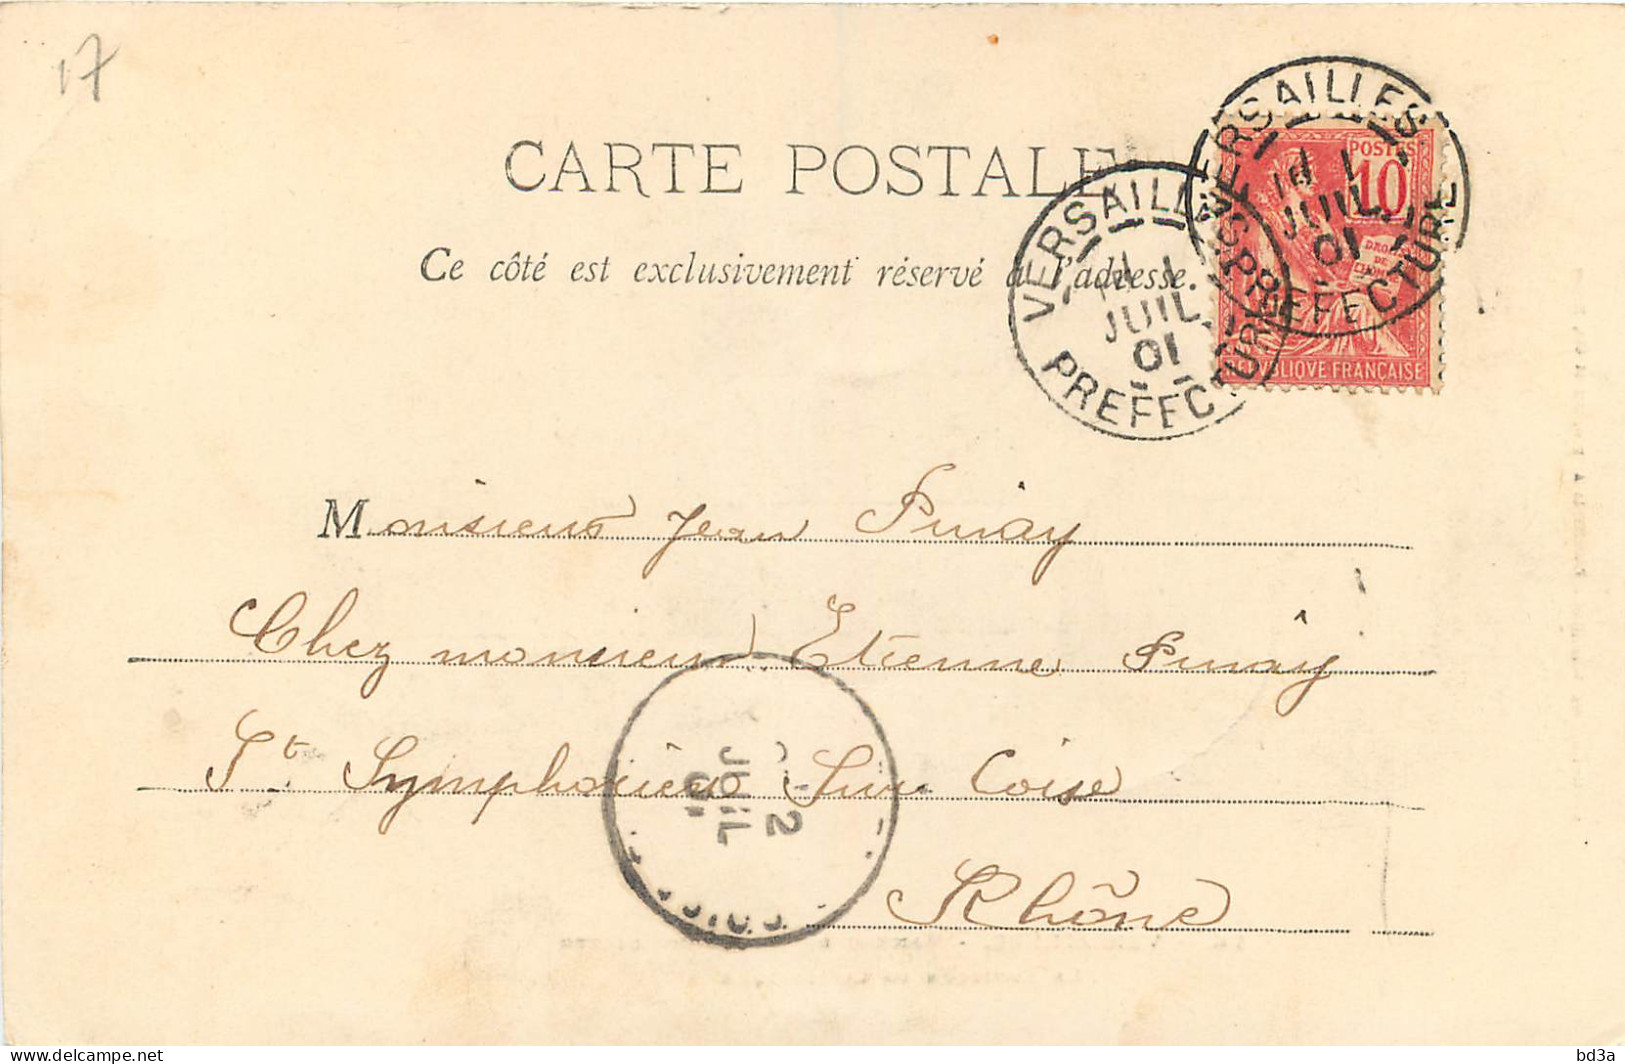 17
CARTE POSTALE
Ce côté est exclusivement réservé à l'adresse.
VERSAILLES
1
JUIL
01
PREFECTURE
VERSAILLES
1
JUIL
01
PREFECTURE
POSTES
10
DROITS
DE
L'HOMME
REPVBLIQVE FRANÇAISE
Monsieur Jean Pinay
Chez monsieur Etienne Pinay
St. Symphorien Sur Coise
Rhône
2
JUIL
01
bd3a
delcampe.net